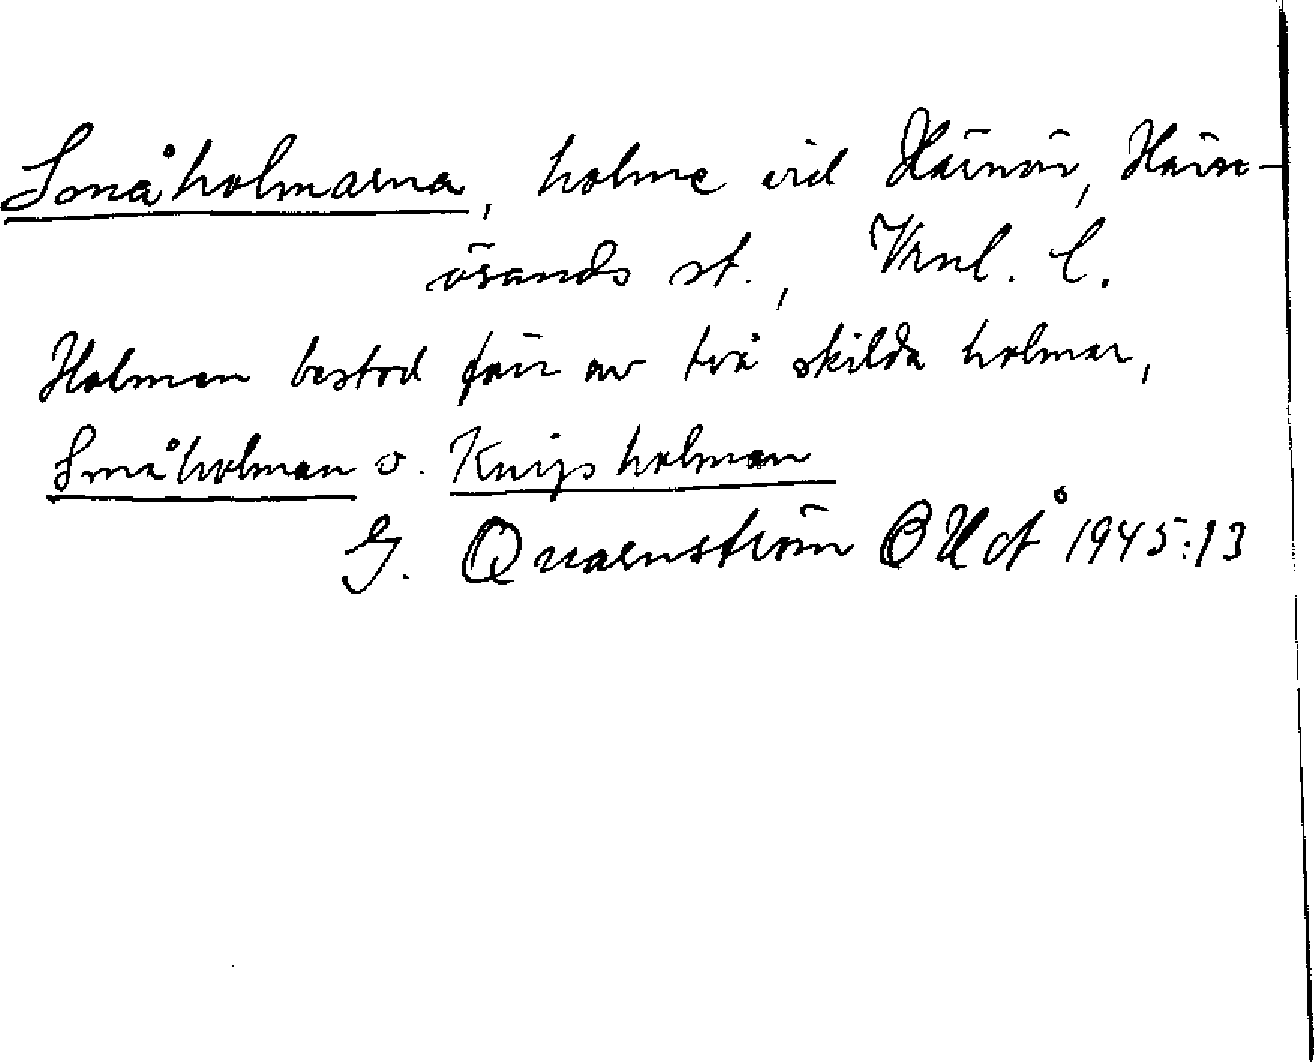 Småholmarna, holme vid Härnön, Härn-
ösands st., Vrnl. l.
Holmen bestod förr av två skilda holmar,
Småholmen o. Knipsholmen
G. Quarnström 1945:13